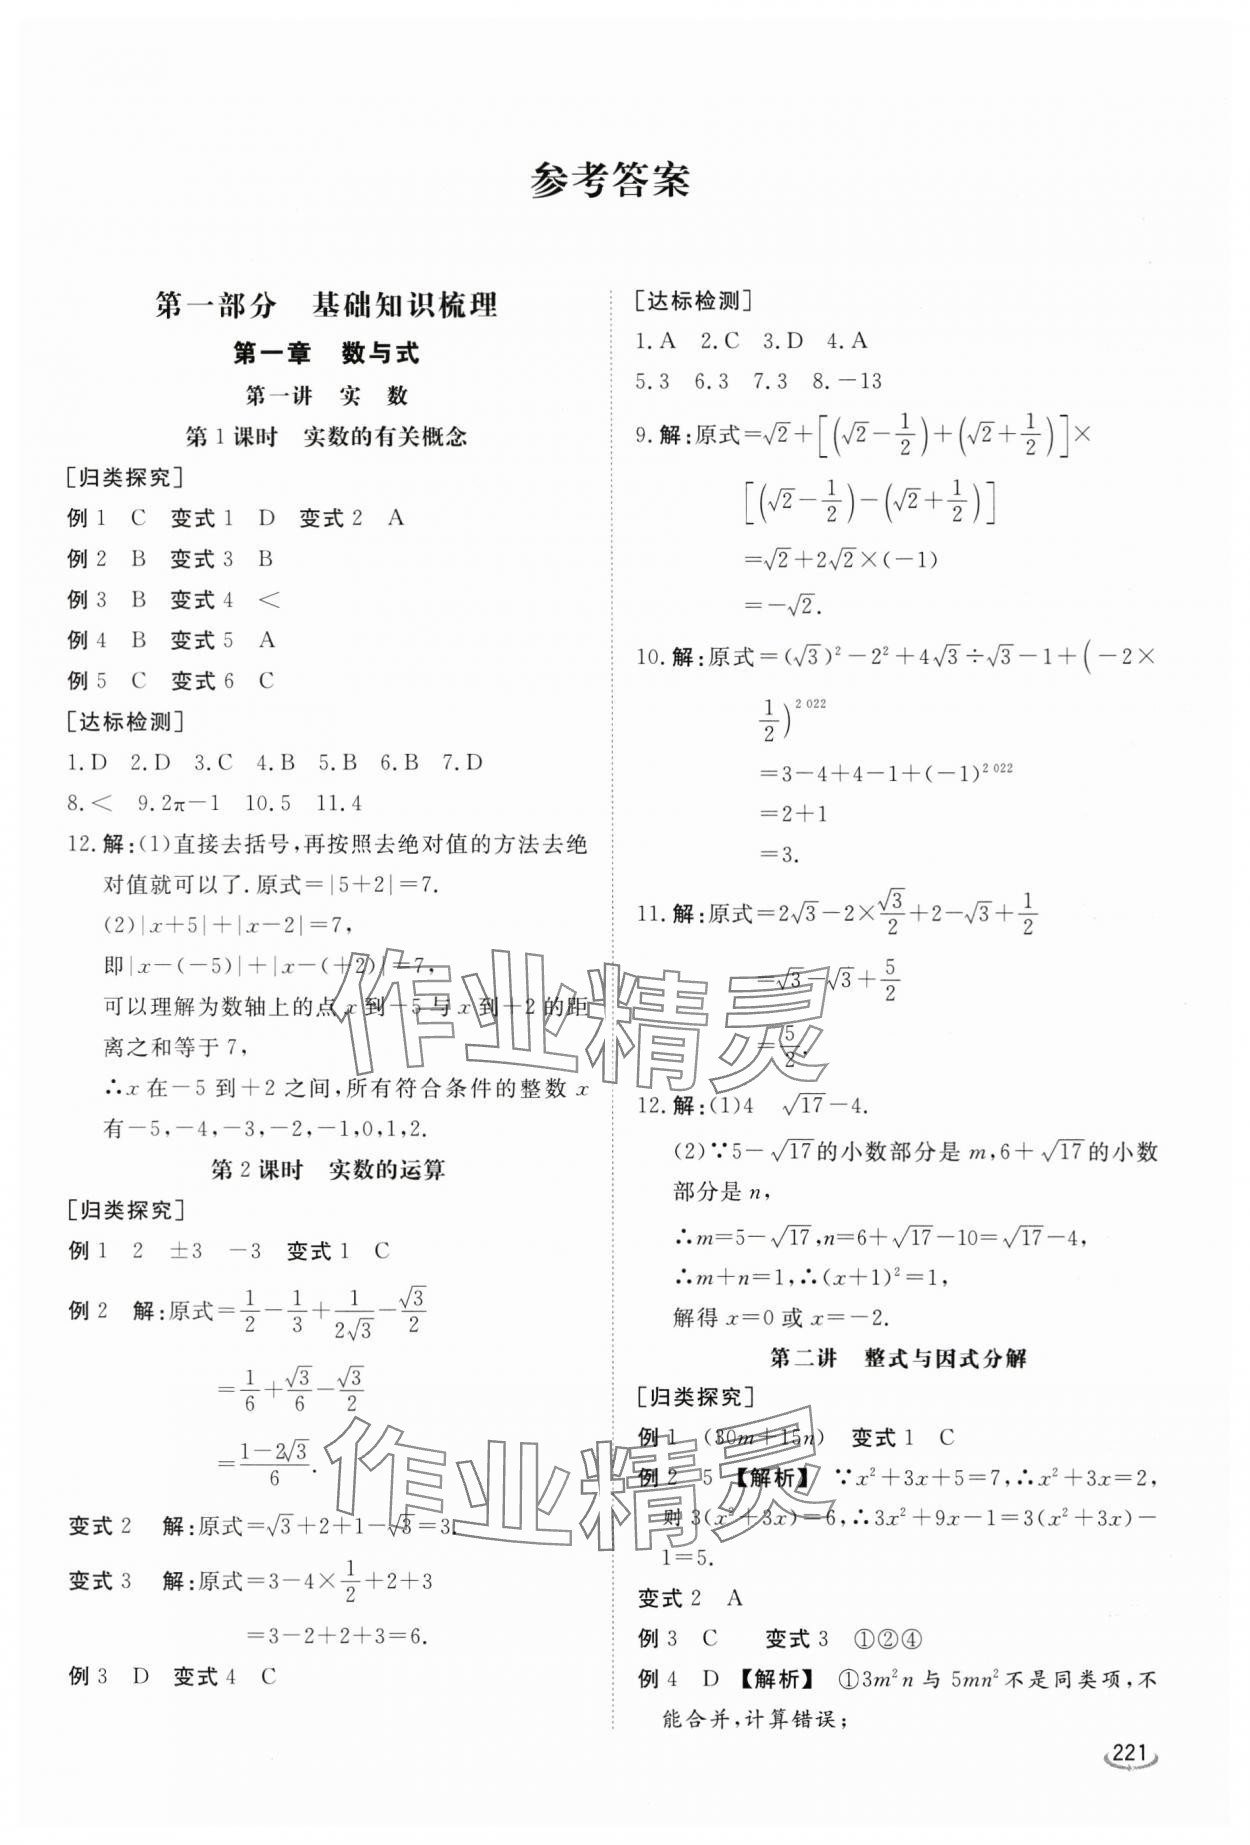 参考答案
第一部分　基础知识梳理
第一章　数与式
第一讲　实　数
第 1 课时　实数的有关概念
[归类探究]
例 1　C　变式 1　D　变式 2　A
例 2　B　变式 3　B
例 3　B　变式 4　<
例 4　B　变式 5　A
例 5　C　变式 6　C
[达标检测]
1.D　2.D　3.C　4.B　5.B　6.B　7.D
8.<　9.2π-1　10.5　11.4
12.解:(1)直接去括号,再按照去绝对值的方法去绝
对值就可以了.原式=|5+2|=7.
(2)|x+5|+|x-2|=7,
即|x-(-5)|+|x-(+2)|=7,
可以理解为数轴上的点 x 到-5 与 x 到+2 的距
离之和等于 7,
∴x 在-5 到+2 之间,所有符合条件的整数 x
有-5,-4,-3,-2,-1,0,1,2.
第 2 课时　实数的运算
[归类探究]
例 1　2　±3　-3　变式 1　C
例 2　解:原式=1/2-1/3+1/(2√3)-√3/2
=1/6+√3/6-√3/2
=(1-2√3)/6.
变式 2　解:原式=√3+2+1-√3=3.
变式 3　解:原式=3-4×1/2+2+3
=3-2+2+3=6.
例 3　D　变式 4　C
[达标检测]
1.A　2.C　3.D　4.A
5.3　6.3　7.3　8.-13
9.解:原式=√2+[(√2-1/2)+(√2+1/2)]×
[(√2-1/2)-(√2+1/2)]
=√2+2√2×(-1)
=-√2.
10.解:原式=(√3)²-2²+4√3÷√3-1+(-2×
1/2)^2 022
=3-4+4-1+(-1)^2 022
=2+1
=3.
11.解:原式=2√3-2×√3/2+2-√3+1/2
=√3-√3+5/2
=5/2.
12.解:(1)4　√17-4.
(2)∵5-√17的小数部分是 m,6+√17的小数
部分是 n,
∴m=5-√17,n=6+√17-10=√17-4,
∴m+n=1,∴(x+1)²=1,
解得 x=0 或 x=-2.
第二讲　整式与因式分解
[归类探究]
例 1　(30m+15n)　变式 1　C
例 2　5　【解析】　∵x²+3x+5=7,∴x²+3x=2,
则 3(x²+3x)=6,∴3x²+9x-1=3(x²+3x)-
1=5.
变式 2　A
例 3　C　变式 3　①②④
例 4　D　【解析】　①3m²n 与 5mn²不是同类项,不
能合并,计算错误;
221
作业精灵
作业精灵